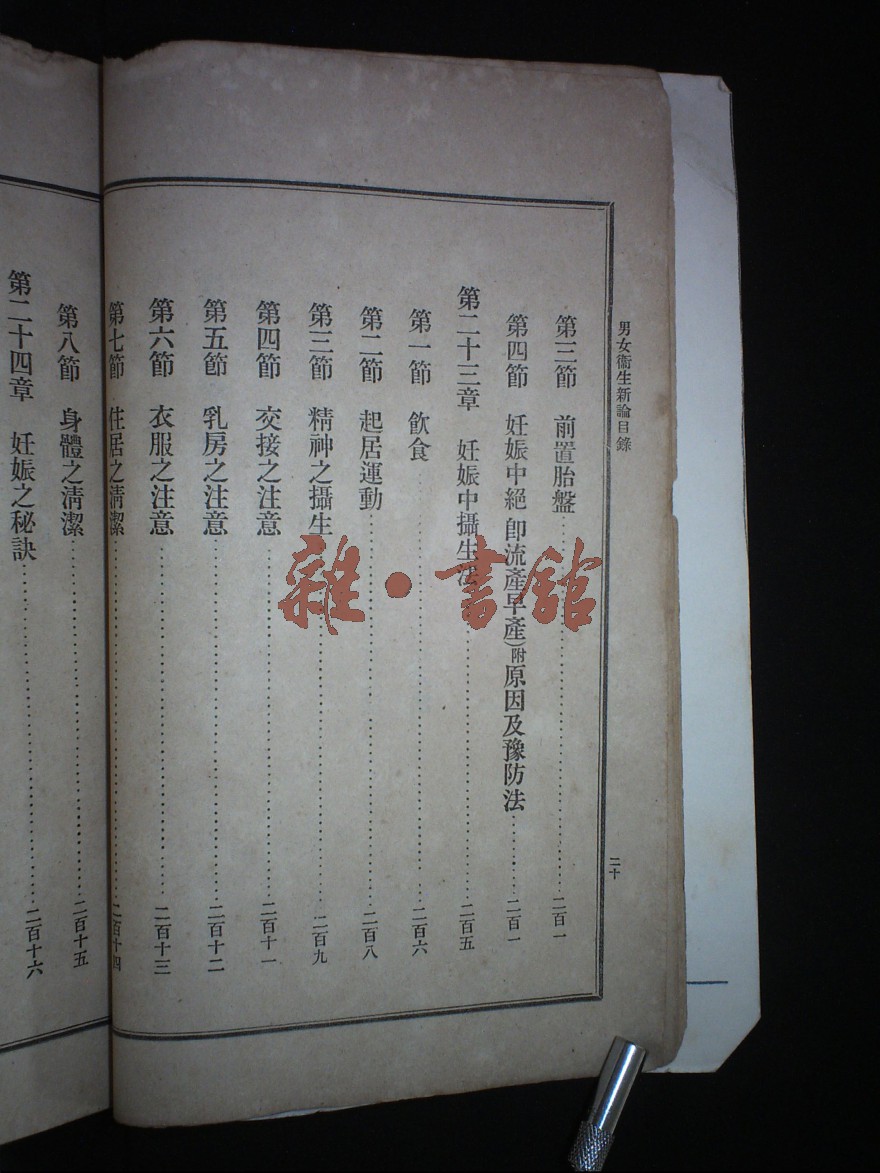 男女衞生新論目錄
二十
第三節　前置胎盤……二百一
第四節　妊娠中絕 卽流產早產)附原因及豫防法……二百一
第二十三章　妊娠中攝生法……二百五
第一節　飲食……二百六
第二節　起居運動……二百八
第三節　精神之攝生……二百九
第四節　交接之注意……二百十一
第五節　乳房之注意……二百十二
第六節　衣服之注意……二百十三
第七節　住居之淸潔……二百十四
第八節　身體之淸潔……二百十五
第二十四章　妊娠之秘訣……二百十六
雜·書館